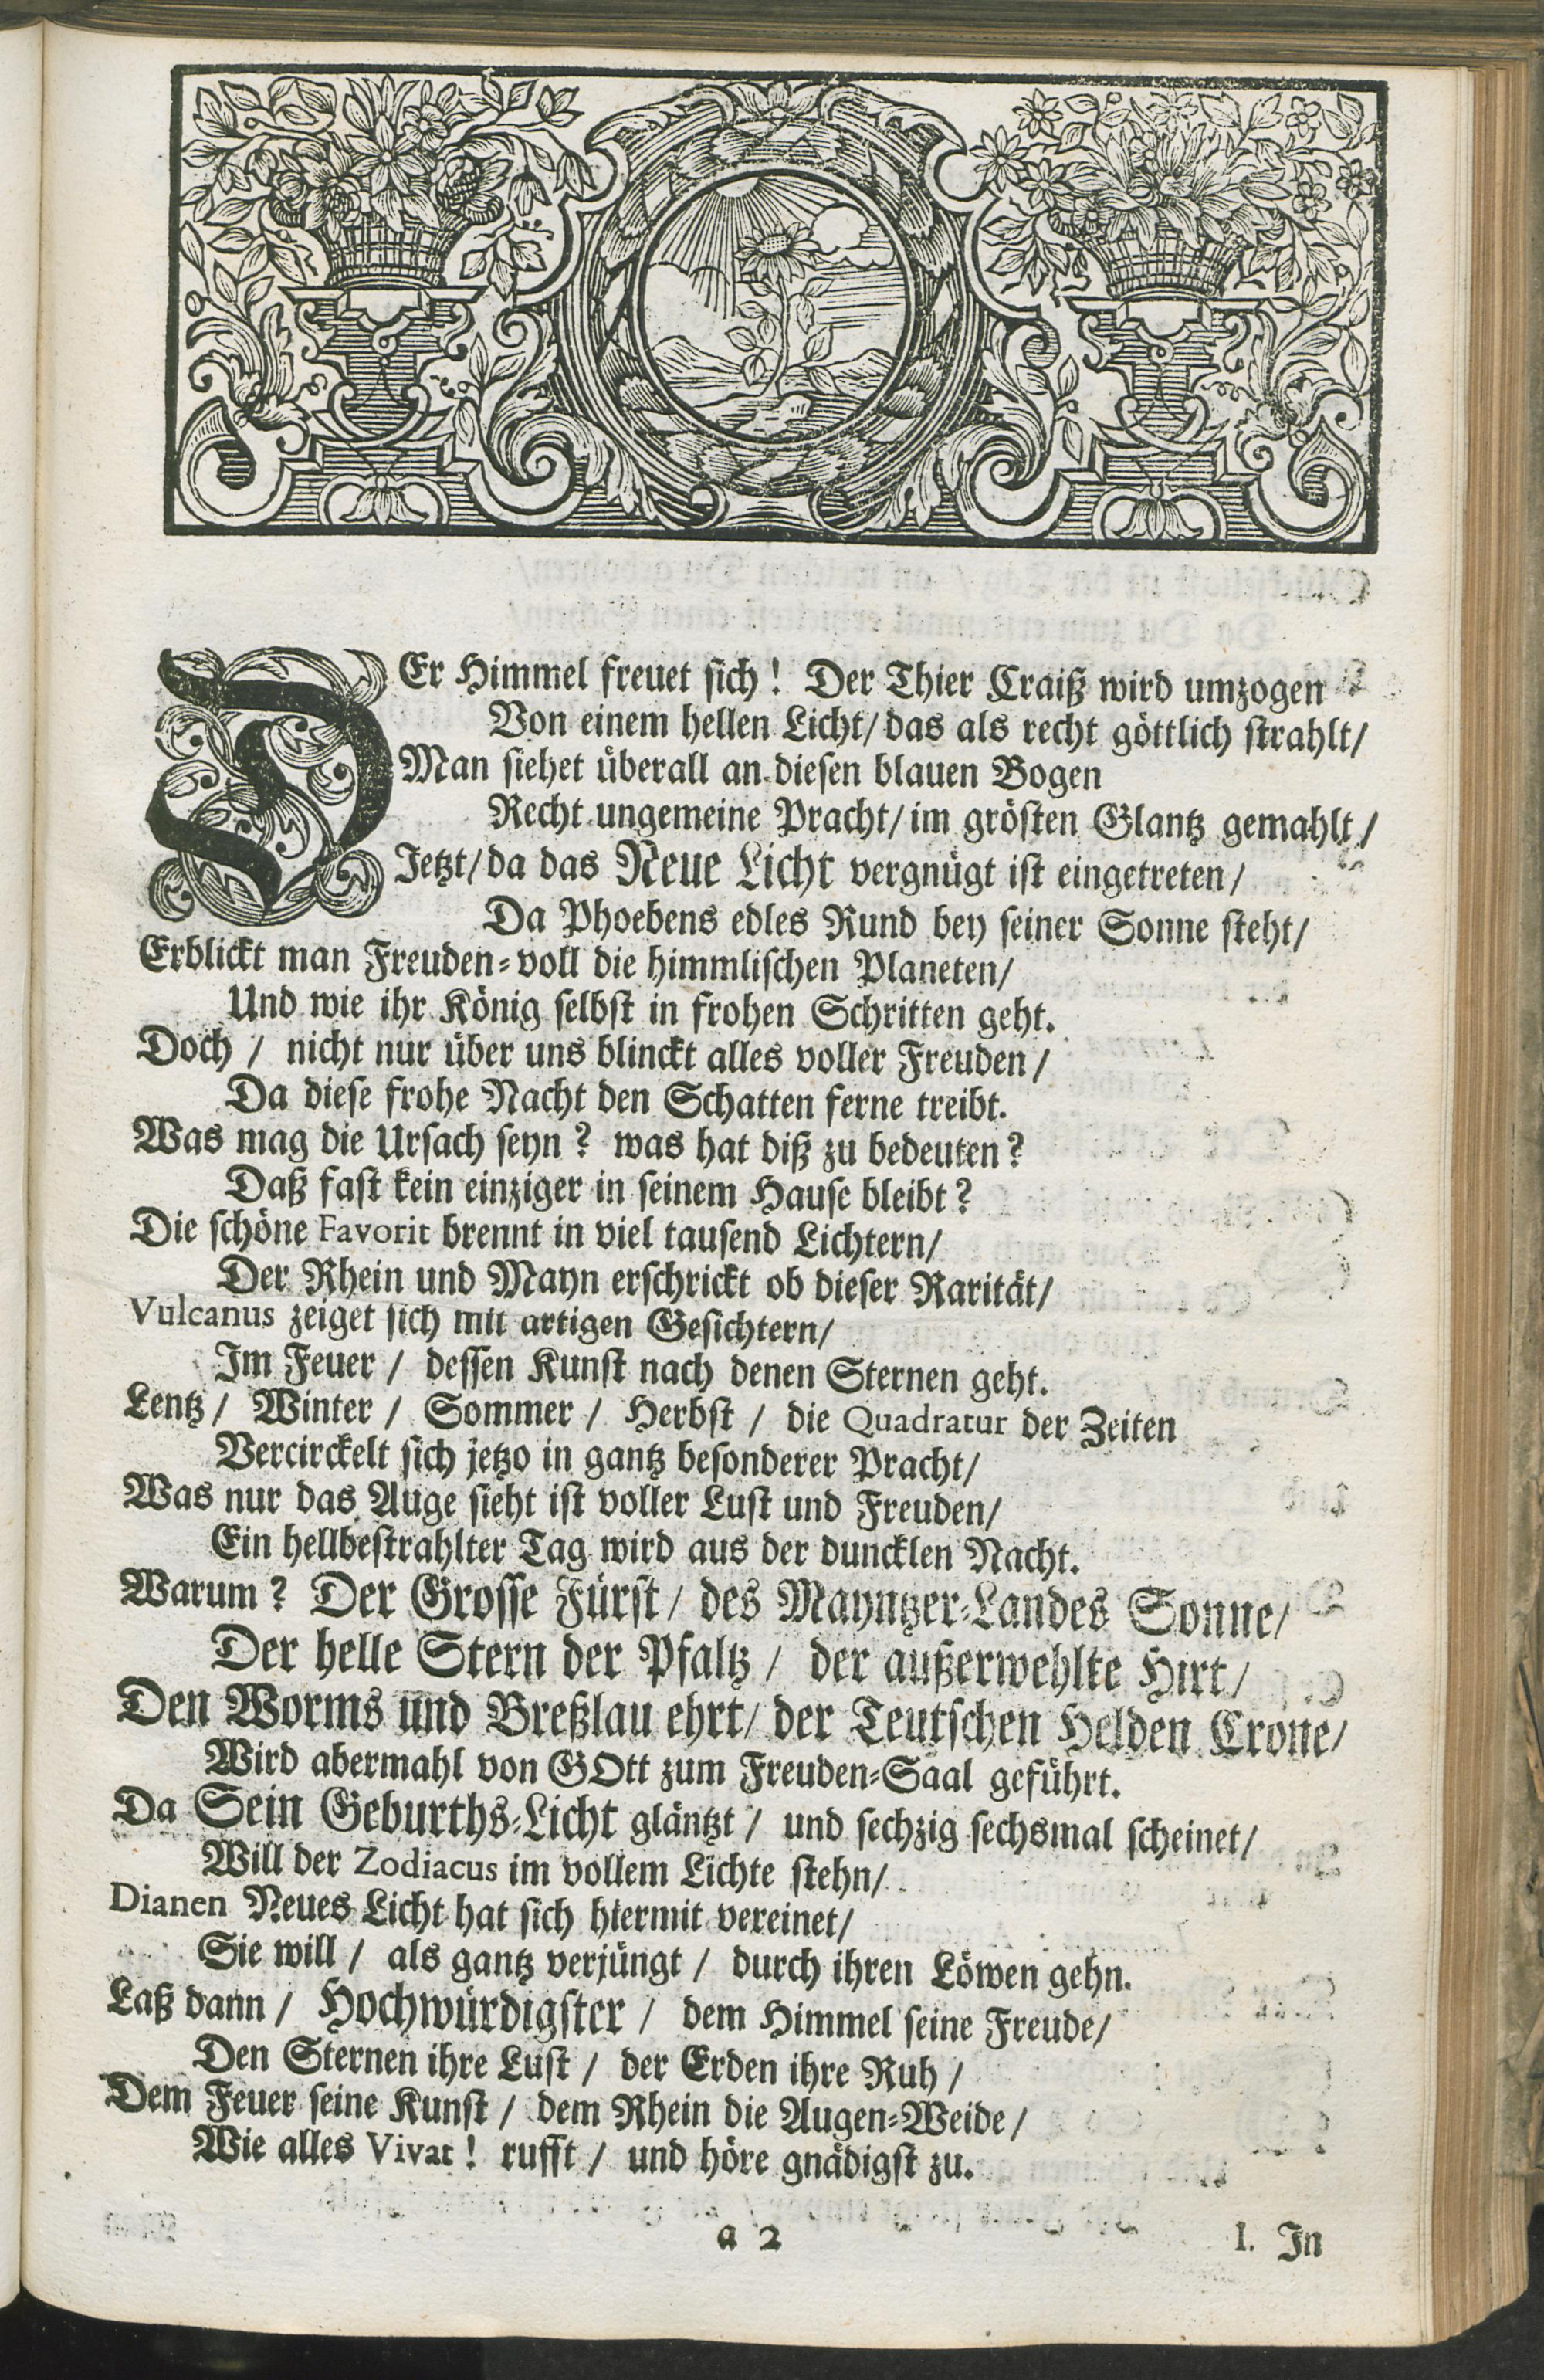 DEr Himmel freuet sich! Der Thier Craiß wird umzogen
Von einem hellen Licht/ das als recht göttlich strahlt/
Man siehet überall an diesen blauen Bogen
Recht ungemeine Pracht/ im grösten Glantz gemahlt/
Jetzt/ da das Neue Licht vergnügt ist eingetreten/
Da Phoebens edles Rund bey seiner Sonne steht/
Erblickt man Freuden-voll die himmlischen Planeten/
Und wie ihr König selbst in frohen Schritten geht.
Doch / nicht nur über uns blinckt alles voller Freuden/
Da diese frohe Nacht den Schatten ferne treibt.
Was mag die Ursach seyn? was hat diß zu bedeuten?
Daß fast kein einziger in seinem Hause bleibt?
Die schöne Favorit brennt in viel tausend Lichtern/
Der Rhein und Mayn erschrickt ob dieser Rarität/
Vulcanus zeiget sich mit artigen Gesichtern/
Im Feuer / dessen Kunst nach denen Sternen geht.
Lentz / Winter / Sommer / Herbst / die Quadratur der Zeiten
Vercirckelt sich jetzo in gantz besonderer Pracht/
Was nur das Auge sieht ist voller Lust und Freuden/
Ein hellbestrahlter Tag wird aus der duncklen Nacht.
Warum? Der Grosse Fürst / des Mayntzer-Landes Sonne/
Der helle Stern der Pfaltz / der außerwehlte Hirt/
Den Worms und Breßlau ehrt/ der Teutschen Helden Crone/
Wird abermahl von GOtt zum Freuden-Saal geführt.
Da Sein Geburths-Licht gläntzt / und sechzig sechsmal scheinet/
Will der Zodiacus im vollem Lichte stehn/
Dianen Neues Licht hat sich hiermit vereinet/
Sie will / als gantz verjüngt / durch ihren Löwen gehn.
Laß dann / Hochwürdigster / dem Himmel seine Freude/
Den Sternen ihre Lust / der Erden ihre Ruh /
Dem Feuer seine Kunst / dem Rhein die Augen-Weide /
Wie alles Vivat! rufft / und höre gnädigst zu.
a 2
I. In